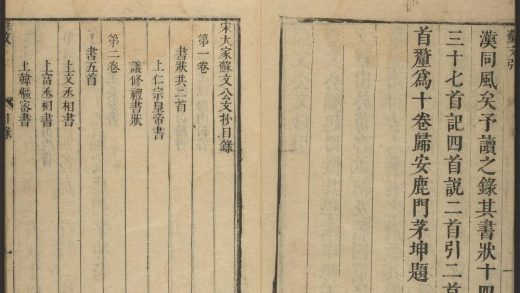 蘇文引
漢同風矣予讀之錄其書狀十四
三十七首記四首說二首引二首
首釐爲十卷歸安鹿門茅坤題
宋大家蘇文公文抄目錄
第一卷
書狀共三首
上仁宗皇帝書
議修禮書狀
第二卷
書五首
上文丞相書
上富丞相書
上韓樞密書
目錄